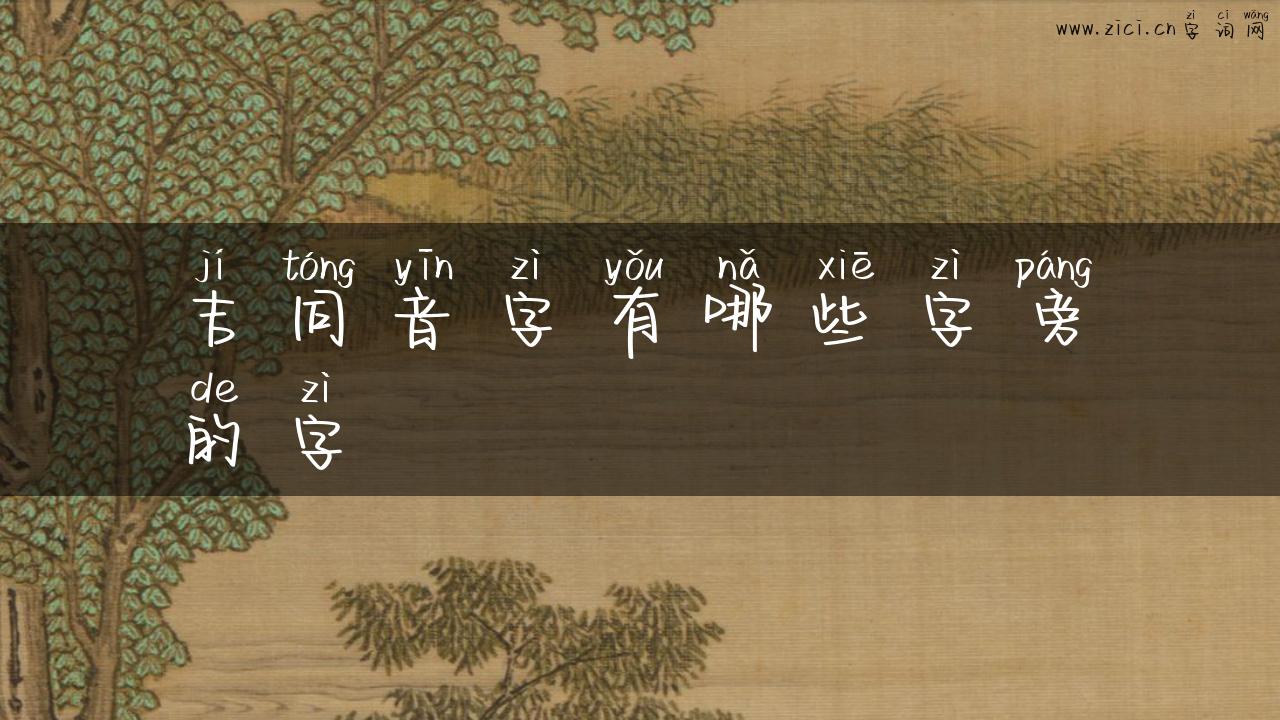 www.zici.cn zì cí wǎng
字词网
jí tóng yīn zì yǒu nǎ xiē zì páng
吉同音字有哪些字旁
de zì
的字